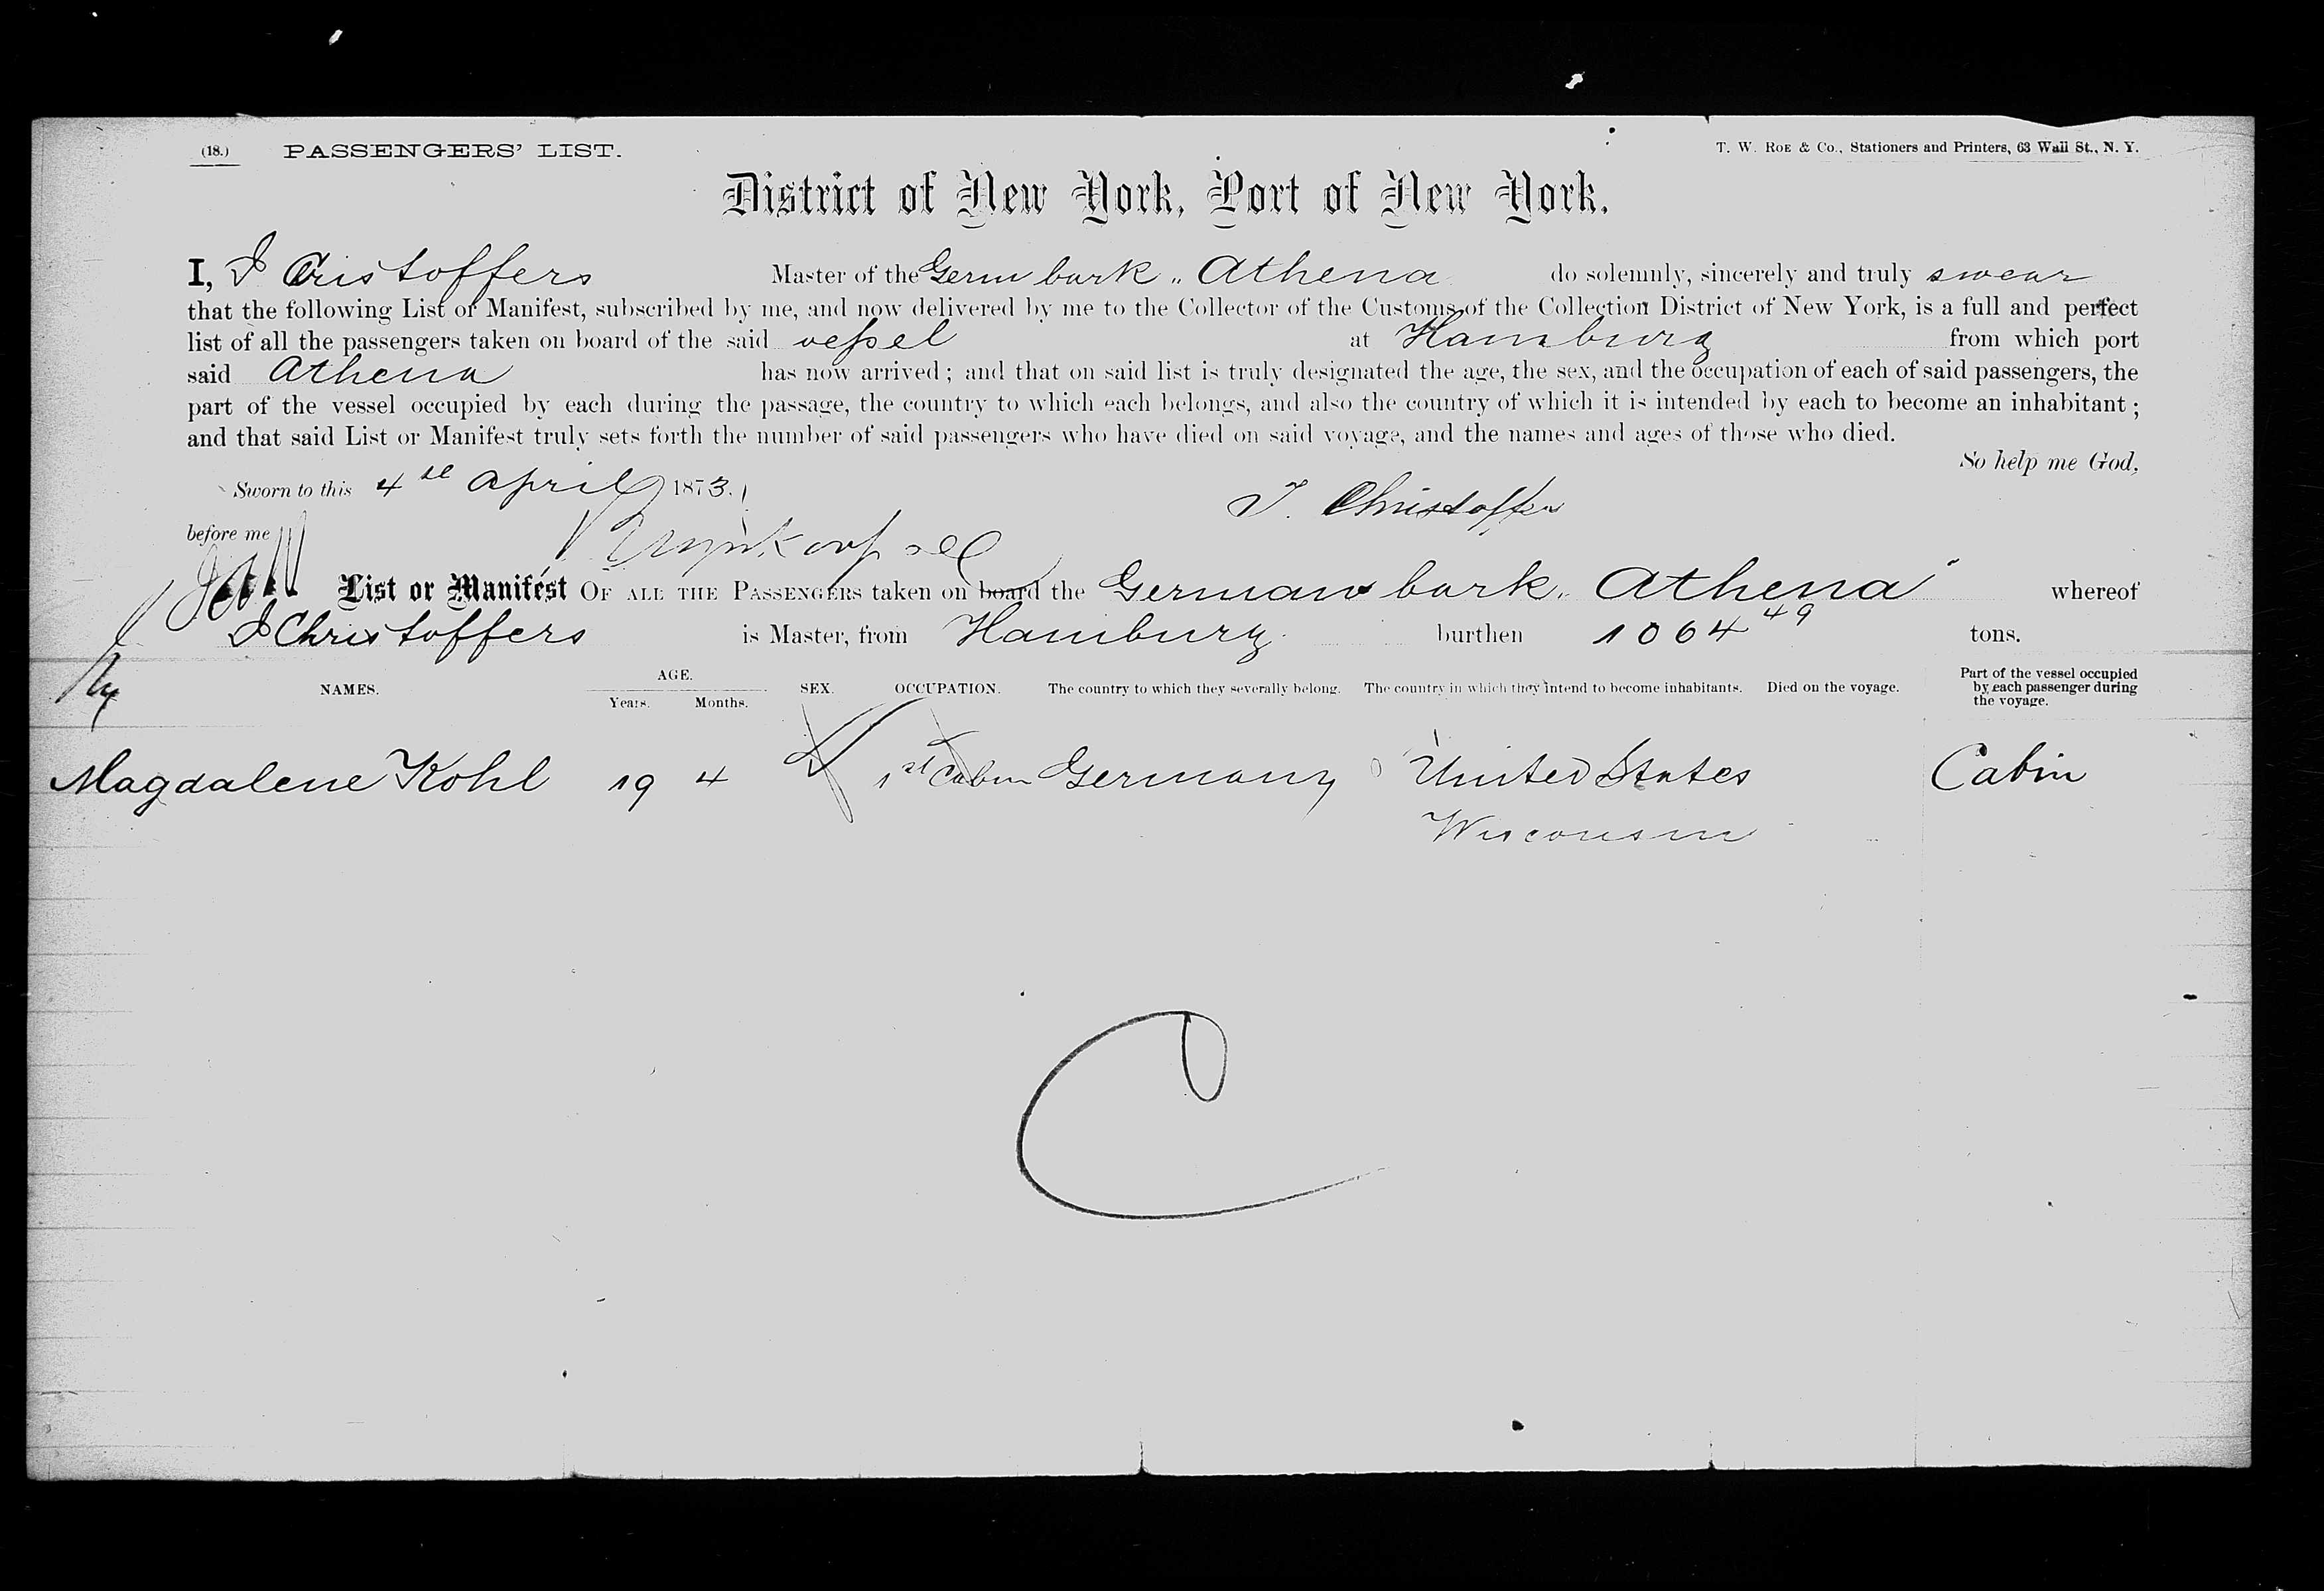 (18.) PASSENGERS' LIST. T. W. ROE & Co., Stationers and Printers, 63 Wall St., N. Y.
District of New York, Port of New York.
I, J Cristoffers Master of the Germ bark „ Athena do solemnly, sincerely and truly swear
that the following List or Manifest, subscribed by me, and now delivered by me to the Collector of the Customs of the Collection District of New York, is a full and perfect
list of all the passengers taken on board of the said vessel at Hamburg from which port
said Athena has now arrived; and that on said list is truly designated the age, the sex, and the occupation of each of said passengers, the
part of the vessel occupied by each during the passage, the country to which each belongs, and also the country of which it is intended by each to become an inhabitant;
and that said List or Manifest truly sets forth the number of said passengers who have died on said voyage, and the names and ages of those who died.
So help me God,
Sworn to this 4 April 1873.
J. Christoffers
before me
List or Manifest OF ALL THE PASSENGERS taken on board the German bark „ Athena" whereof
J Christoffers is Master, from Hamburg burthen 1064 49 tons.
NAMES. AGE. Years. Months. SEX. OCCUPATION. The country to which they severally belong. The country in which they intend to become inhabitants. Died on the voyage. Part of the vessel occupied by each passenger during the voyage.
Magdalene Kohl 19 4 1st Cabin Germany United States Cabin
Wisconsin
C